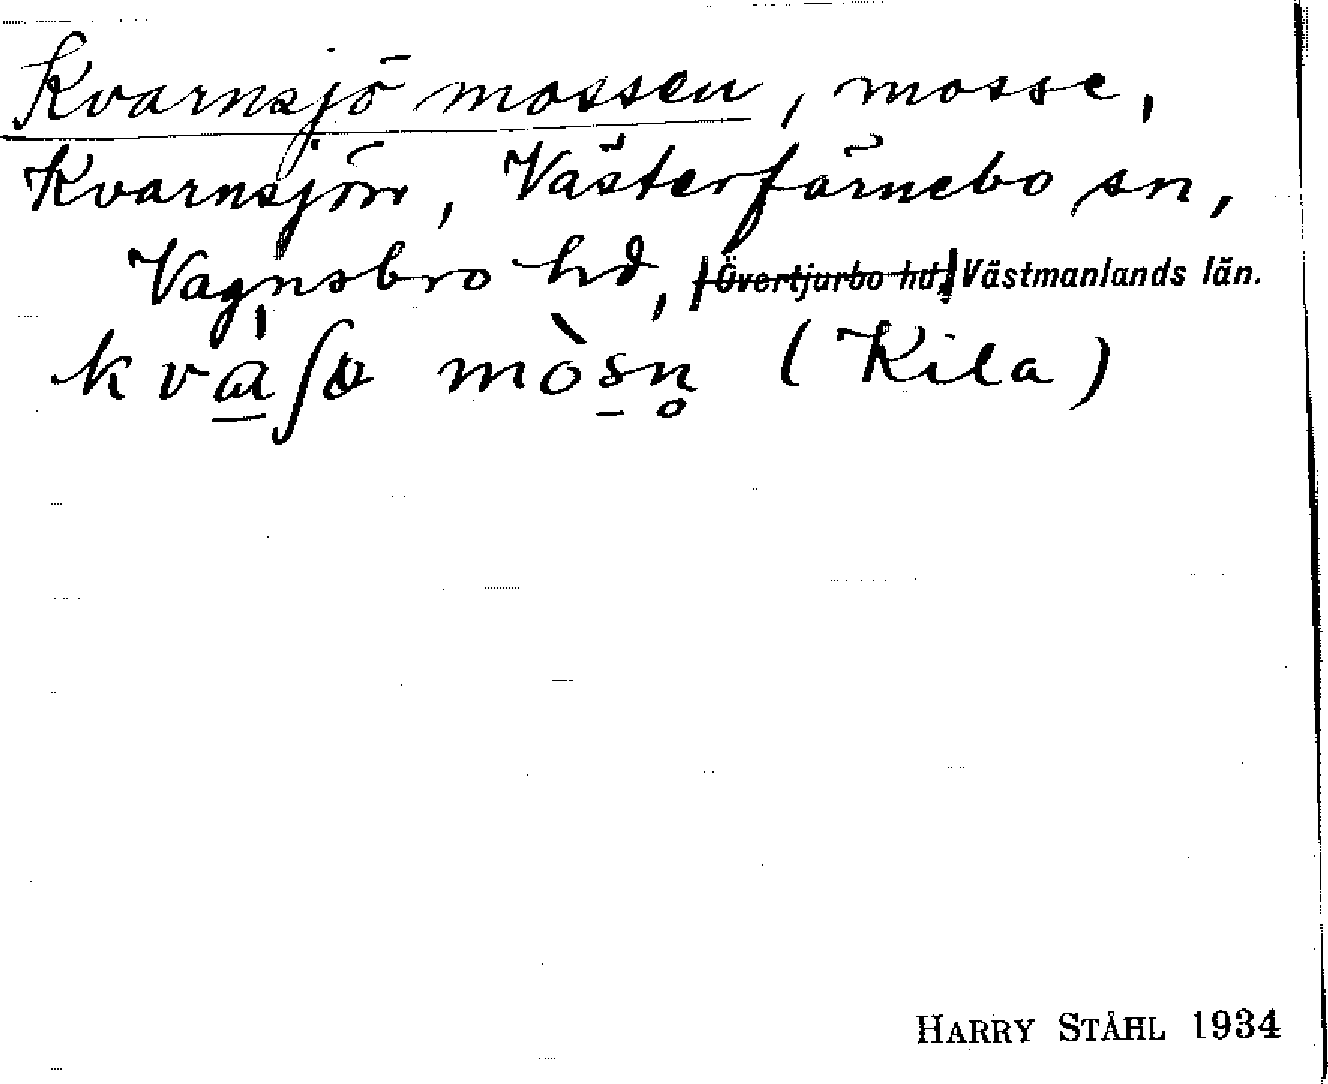 Kvarnsjö mossen, mosse,
Kvarnsjön, Västerfärnebo sn,
Vagnsbro hd, [Övertjurbo hd,] Västmanlands län.
(Kila)
HARRY STÅHL 1934